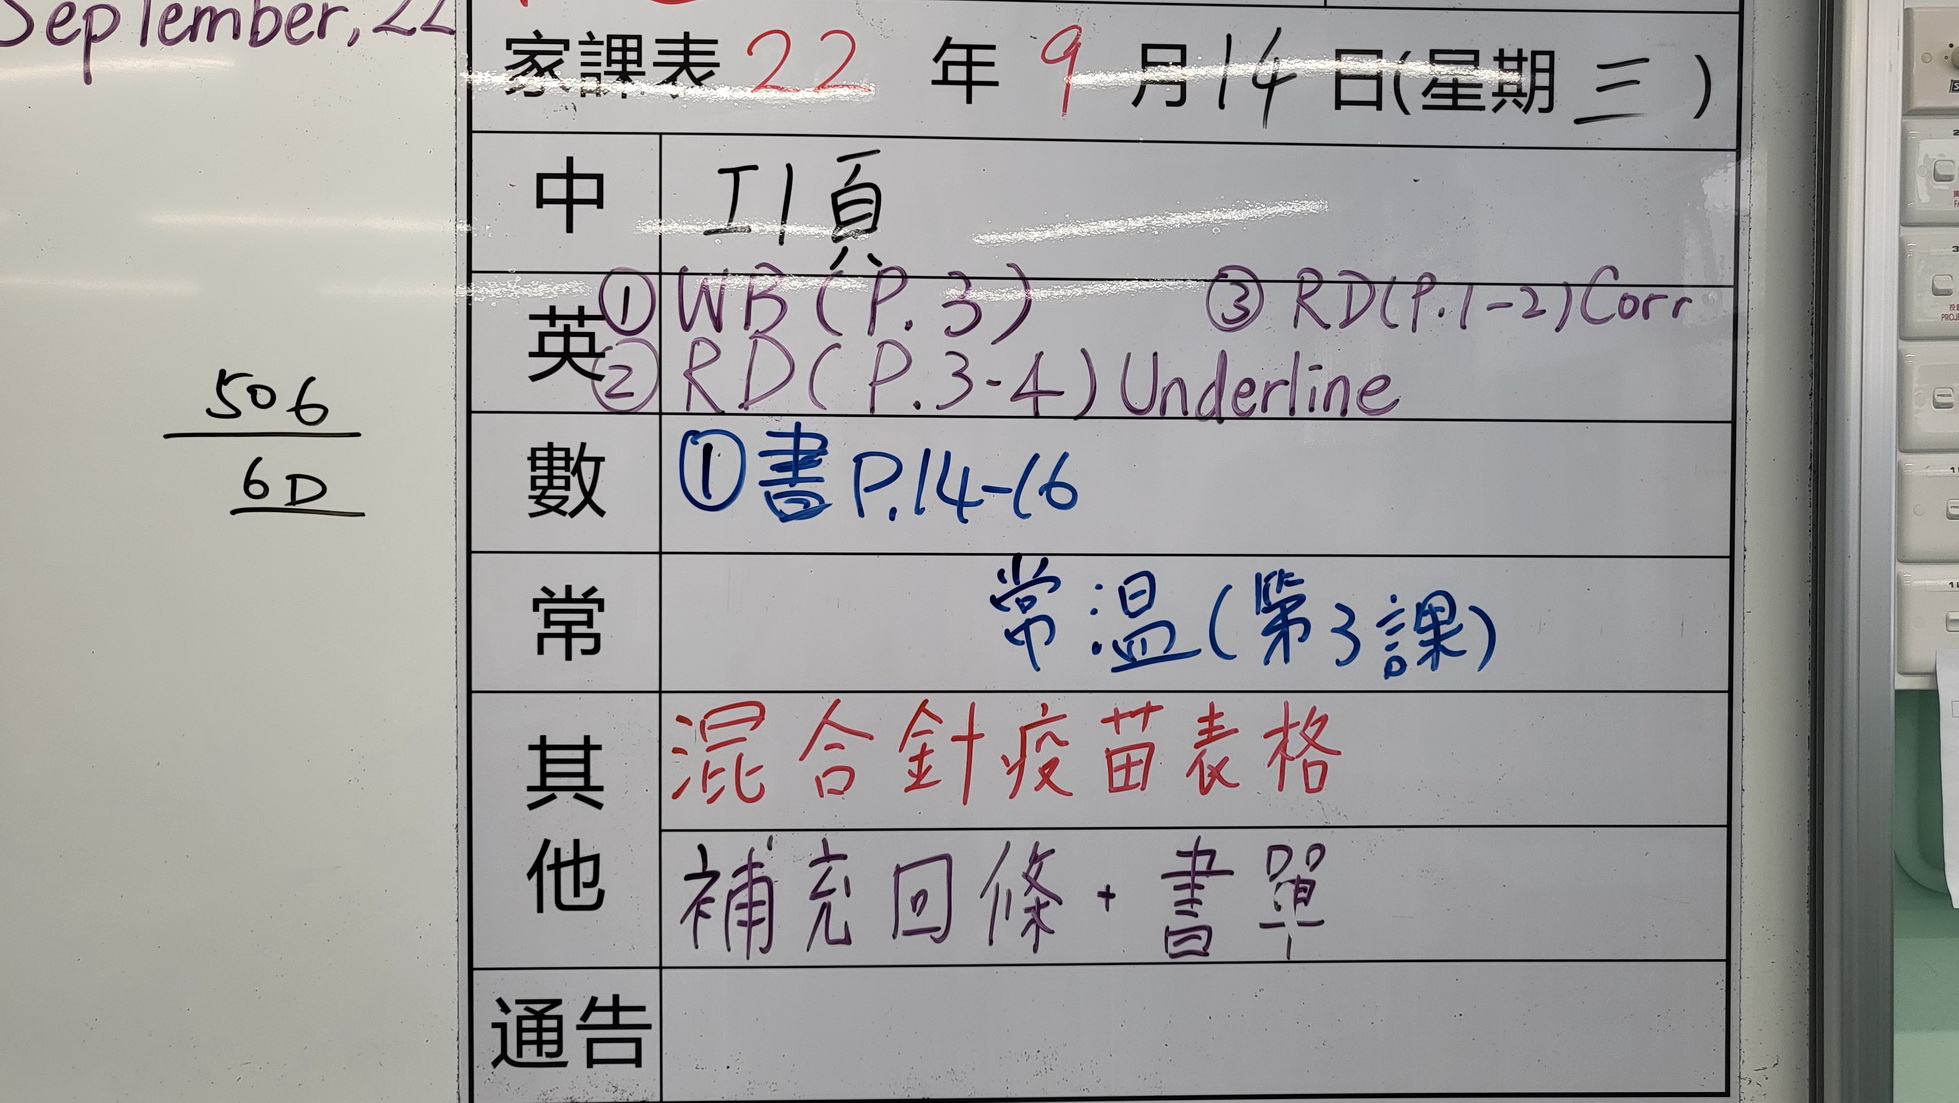 September, 22
家課表 22 年 9 月 14 日(星期 三 )
中 工1頁
英 ① WB (P.3) ③ RD(P.1-2) Corr
② RD (P.3-4) Underline
數 ① 書 P.14-16
常 常溫(第3課)
其他 混合針疫苗表格
補充回條 + 書單
通告
506
6D